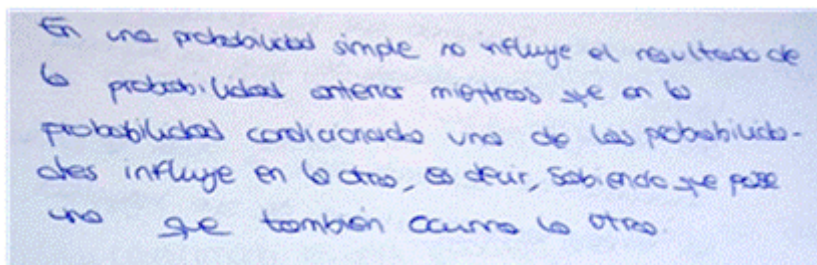 En una probabilidad simple no influye el resultado de
la probabilidad anterior mientras que en la
probabilidad condicionada una de las probabilida-
des influye en la otra, es decir, sabiendo que pase
una que también ocurra la otra.